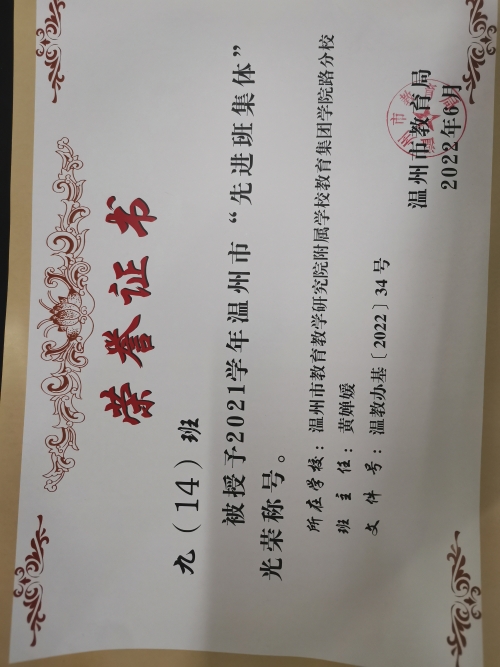 荣誉证书
九（14）班
被授予2021学年温州市“先进班集体”
光荣称号。
所在学校：温州市教育教学研究院附属学校教育集团学院路分校
班主任：黄婵媛
文件号：温教办基〔2022〕34号
温州市教育局
2022年6月